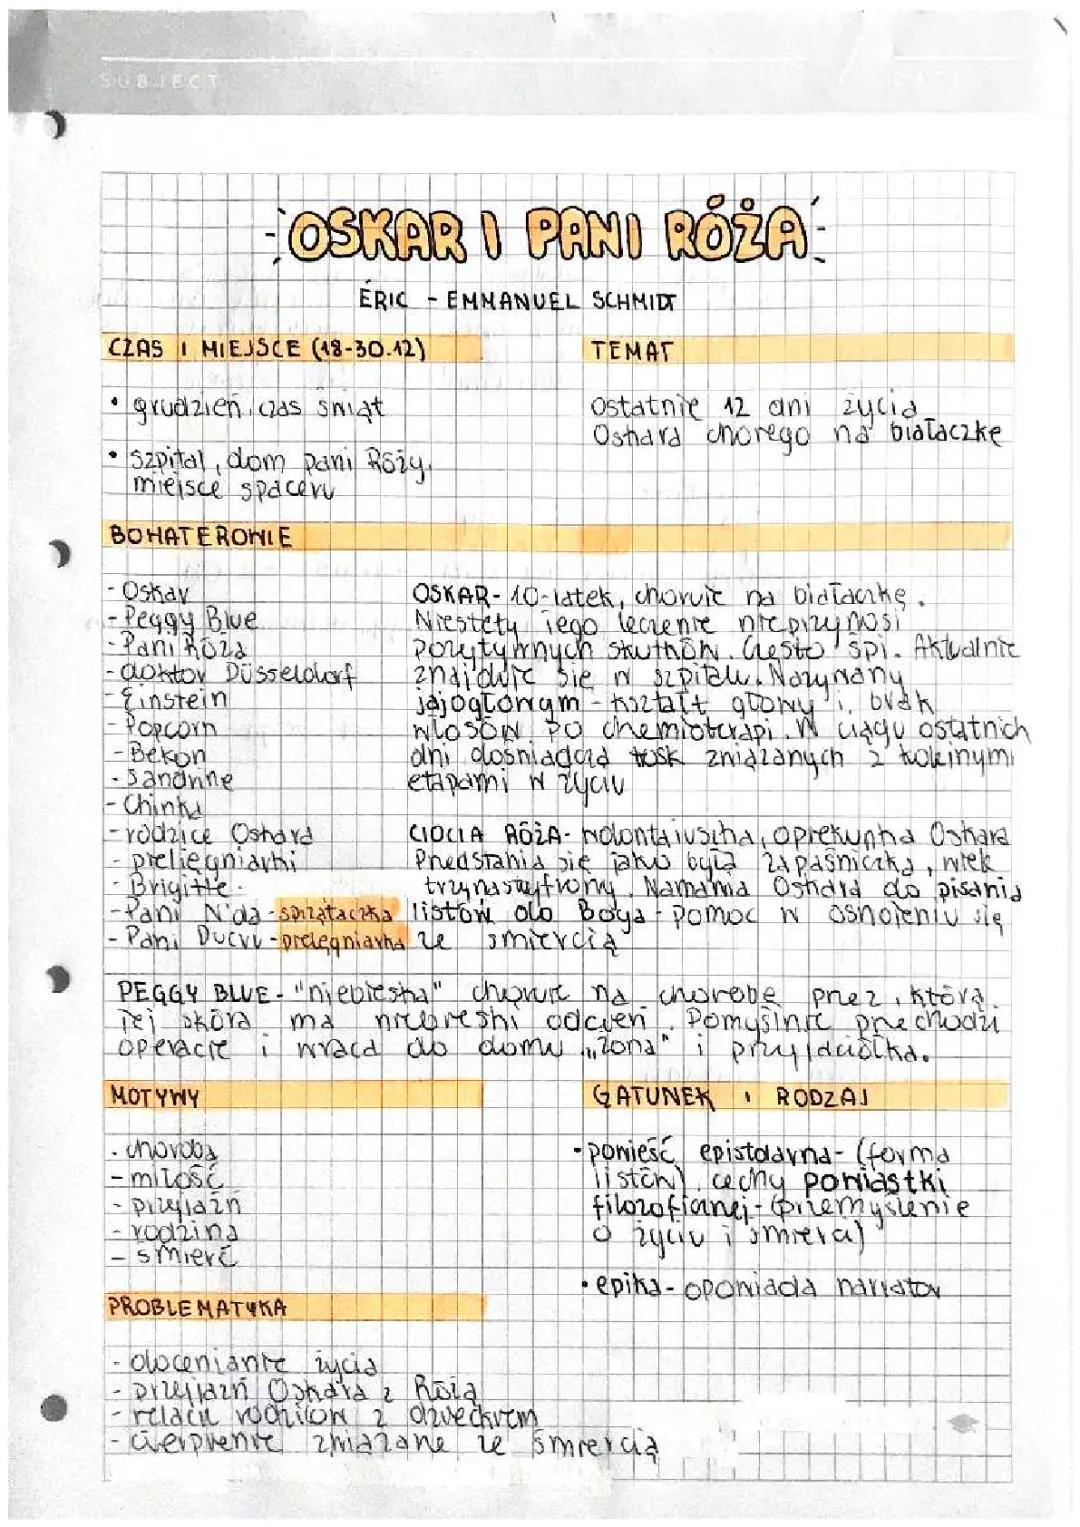 SUBJECT
DATE
OSKAR I PANI RÓŻA
ÉRIC - EMMANUEL SCHMIDT
CZAS I MIEJSCE (18-30.12)
• grudzień, czas świąt
• szpital, dom pani Róży,
miejsce spaceru
TEMAT
Ostatnie 12 dni życia
Oskara chorego na białaczkę
BOHATEROWIE
- Oskar
- Peggy Blue
- Pani Róża
- doktor Düsseldorf
- Einstein
- Popcorn
- Bekon
- Sandrine
- Chinka
- rodzice Oskara
- pielęgniarki
- Brigitte
- Pani N'da - sprzątaczka
- Pani Ducru - pielęgniarka
OSKAR - 10-latek, choruje na białaczkę.
Niestety jego leczenie nie przynosi
pozytywnych skutków. Często śpi. Aktualnie
znajduje się w szpitalu. Nazywany
jajogłowym - kształt głowy i brak
włosów po chemioterapi. W ciągu ostatnich
dni doświadcza trosk związanych z kolejnymi
etapami w życiu
CIOCIA RÓŻA - wolontariuszka, opiekunka Oskara
Przedstawia się jako była zapaśniczka, wiek
trzynastyfiony. Namawia Oskara do pisania
listów do Boga - pomoc w oswojeniu się
ze śmiercią
PEGGY BLUE - "niebieska" choruje na chorobę przez którą
jej skóra ma niebieski odcień. Pomyślnie przechodzi
operację i wraca do domu „żona" i przyjaciółka.
MOTYWY
- choroba
- miłość
- przyjaźń
- rodzina
- śmierć
GATUNEK I RODZAJ
• powieść epistolarna - (forma
listów), cechy powiastki
filozoficznej - (przemyślenie
o życiu i śmierci)
• epika - opowiada narrator
PROBLEMATYKA
- docenianie życia
- przyjaźń Oskara z Różą
- relacje rodziców z dzieckiem
- cierpienie związane ze śmiercią